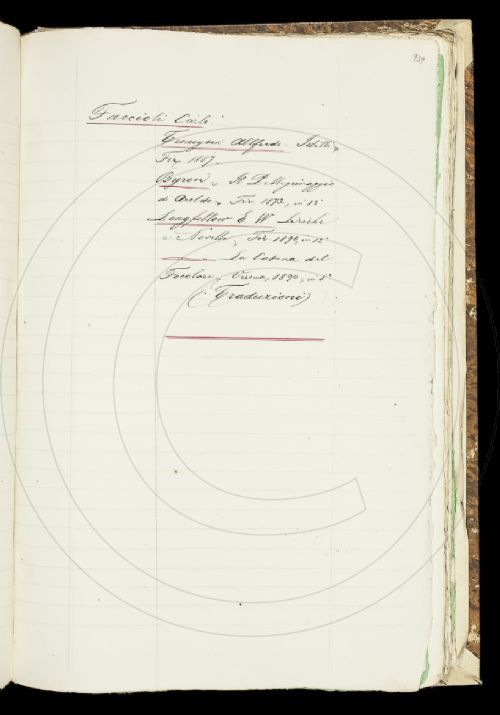 939
Faccioli Carlo
Tennyson Alfredo. Idilli,
Fir. 1887.
Byron, Il Pellegrinaggio
di Aroldo, Fir. 1873, in 12°
Longfellow E. W. Liriche
e Novelle, Fir. 1890, in 12°
La Catena del
Focolare, Verona, 1890, in 8°
(Traduzioni)